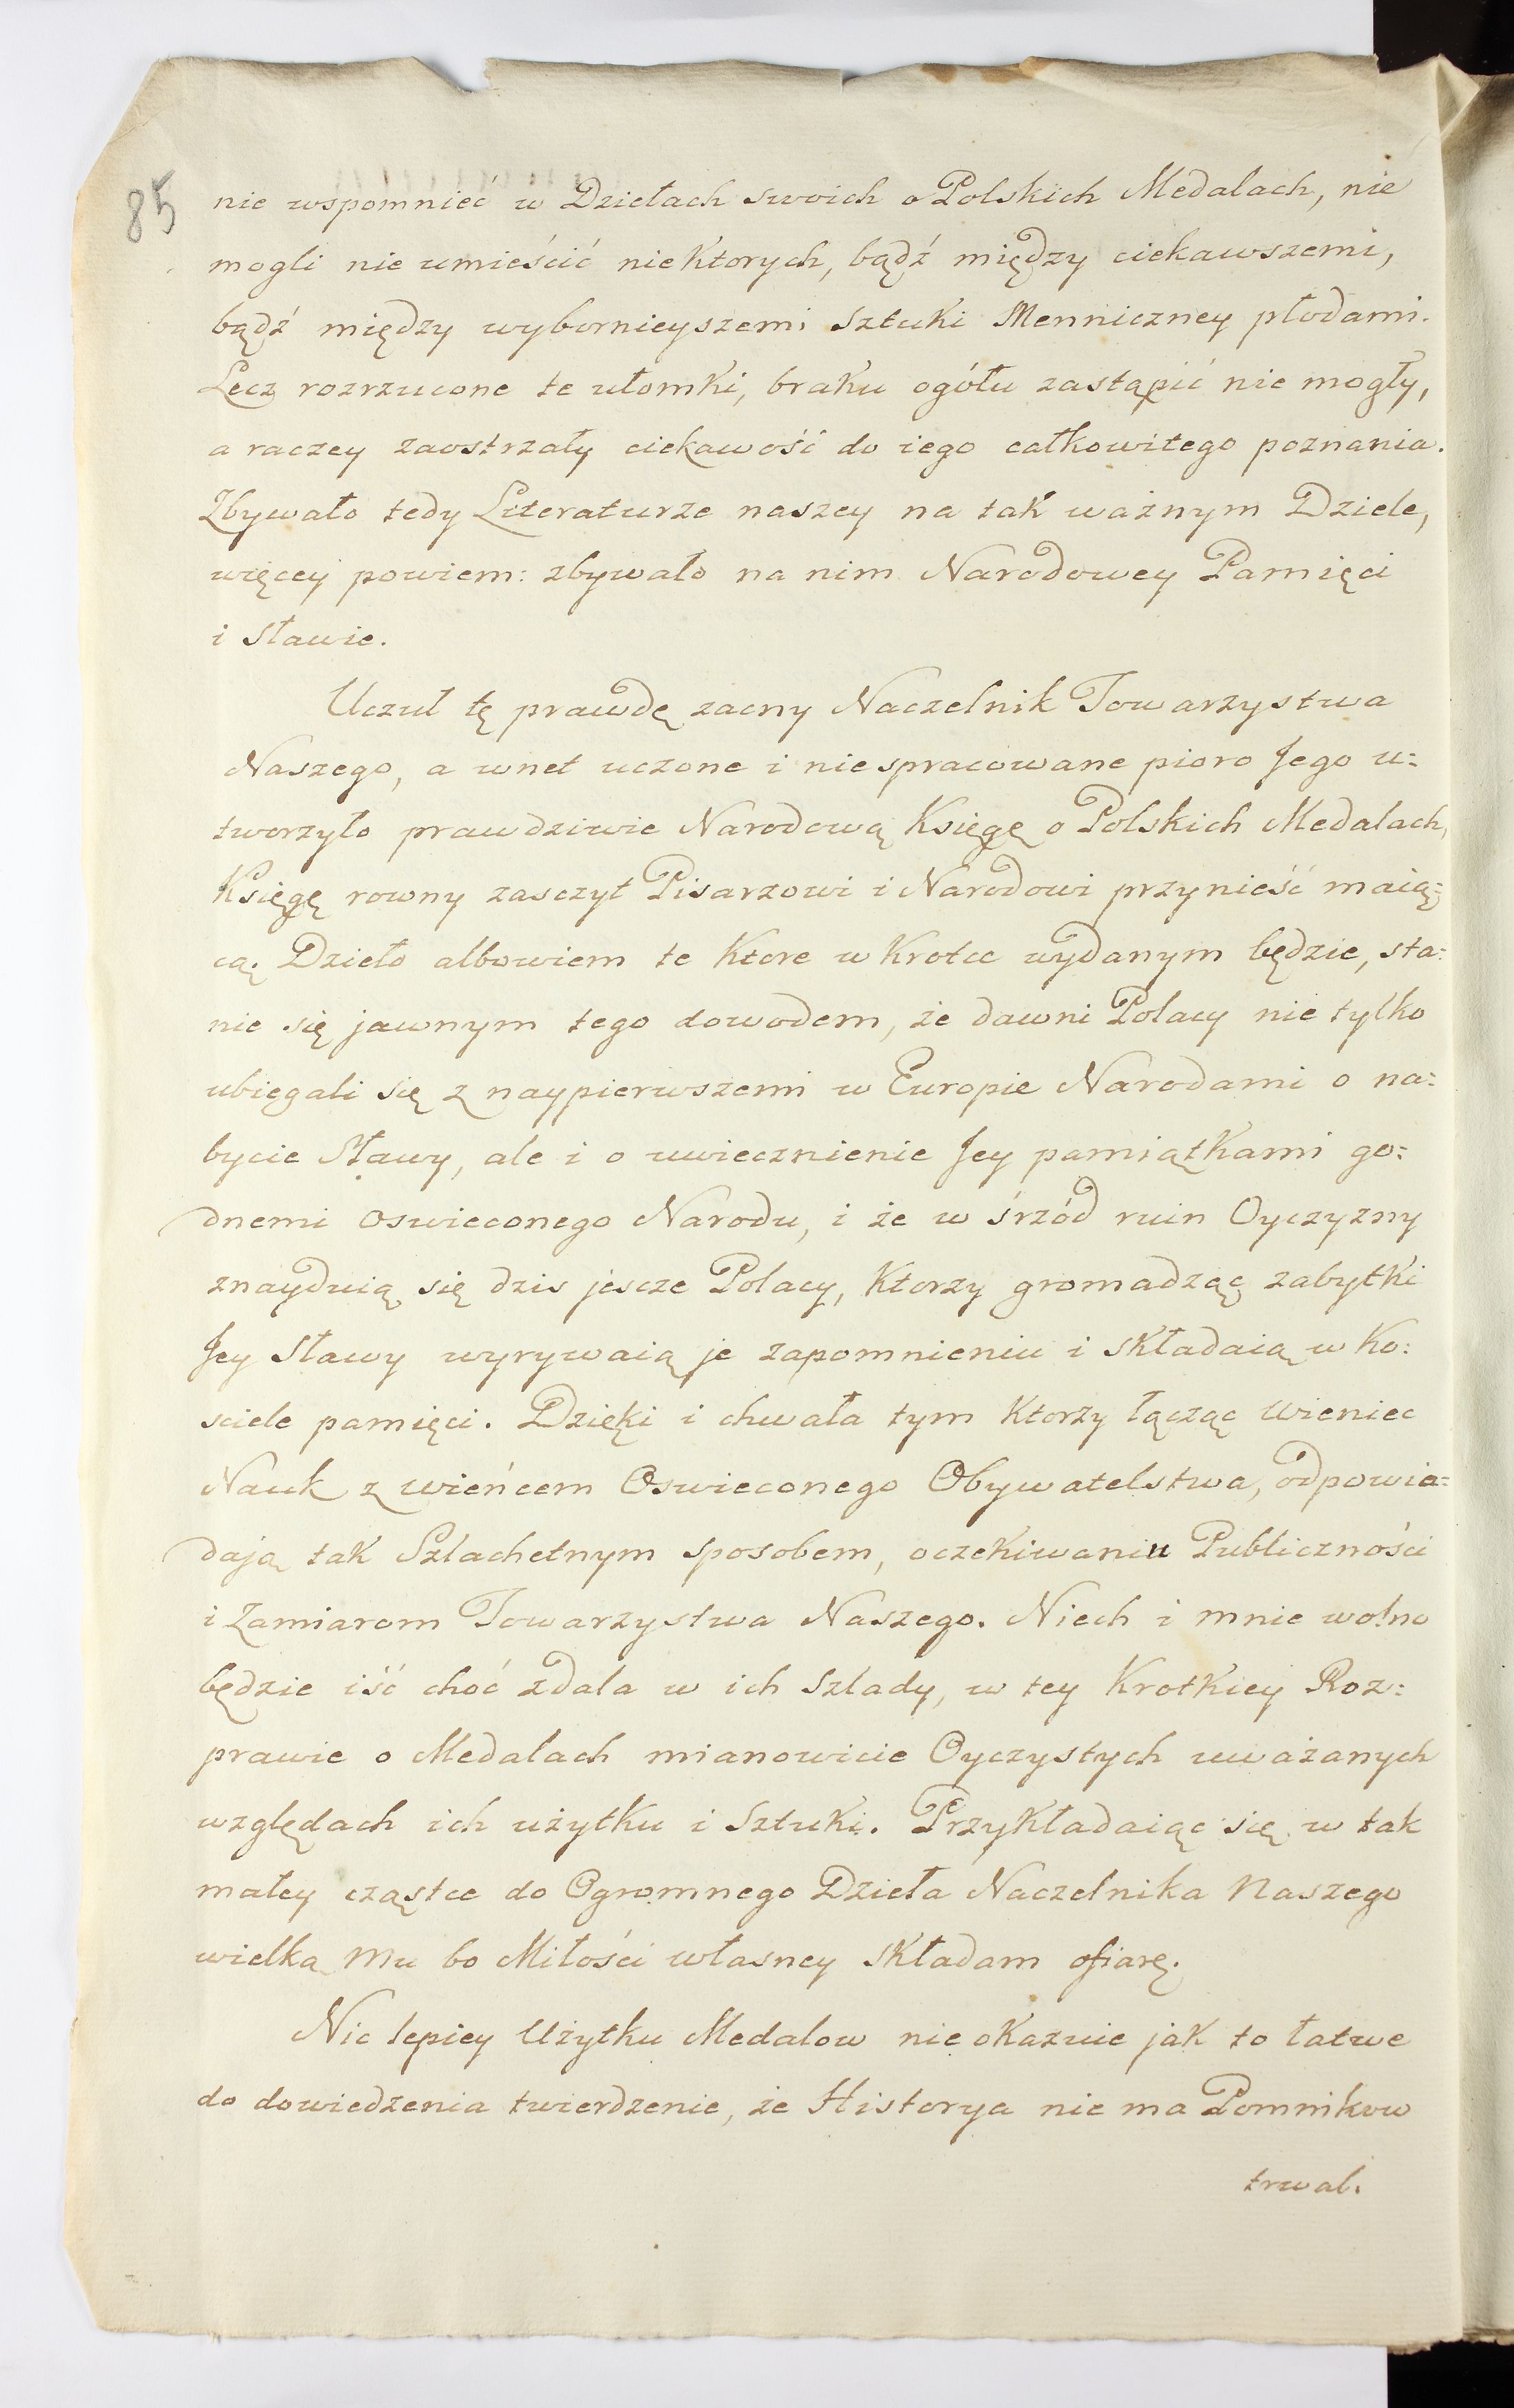 85
nie wspomnieć w Dziełach swoich o Polskich Medalach, nie
mogli nie umieścić niektorych, bądź między ciekawszemi,
bądź między wybornieyszemi Sztuki Menniczney płodami.
Lecz rozrzucone te ułomki, braku ogółu zastąpić nie mogły,
a raczey zaostrzały ciekawość do iego całkowitego poznania.
Zbywało tedy Literaturze naszey na tak ważnym Dziele,
więcey powiem: zbywało na nim Narodowey Pamięci
i Sławie.
Uczuł tę prawdę zacny Naczelnik Towarzystwa
Naszego, a wnet uczone i niespracowane pioro Jego u:
tworzyło prawdziwie Narodową Księgę o Polskich Medalach,
Księgę rowny zasczyt Pisarzowi i Narodowi przynieść maią:
cą. Dzieło albowiem te Ktore w Krotce wydanym będzie, sta:
nie się jawnym tego dowodem, że dawni Polacy nie tylko
ubiegali się z naypierwszemi w Europie Narodami o na:
bycie Sławy, ale i o uwiecznienie Jey pamiątkami go:
dnemi Oswieconego Narodu, i że w śrzód ruin Oyczyzny
znayduią się dzis jescze Polacy, Ktorzy gromadząc zabytki
Jey Sławy wyrywaią je zapomnieniu i Składaią w Ko:
sciele pamięci. Dzięki i chwała tym Ktorzy łącząc wieniec
Nauk z wieńcem Oswieconego Obywatelstwa, odpowia:
dają tak Szlachetnym sposobem, oczekiwaniu Publiczności
i Zamiarom Towarzystwa Naszego. Niech i mnie wolno
będzie iść choć zdala w ich Szlady, w tey Krotkiey Roz:
prawie o Medalach mianowicie Oyczystych uważanych
względach ich użytku i Sztuki. Przykładaiąc się w tak
małey cząstce do Ogromnego Dzieła Naczelnika Naszego
wielką Mu bo Miłości własney Składam ofiarę.
Nic lepiey Użytku Medalow nie okazuie jak to łatwe
do dowiedzenia twierdzenie, że Historya nie ma Pomnikow
trwal.